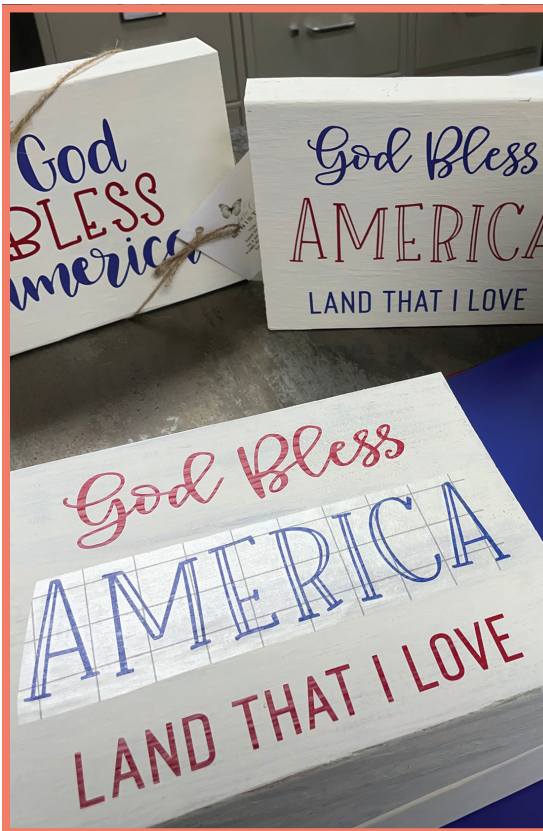 God
BLESS
America
God Bless
AMERICA
LAND THAT I LOVE
God Bless
AMERICA
LAND THAT I LOVE